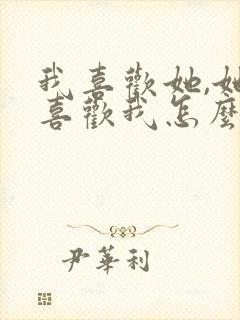 我喜歡她,她
喜歡我怎麼
尹華利